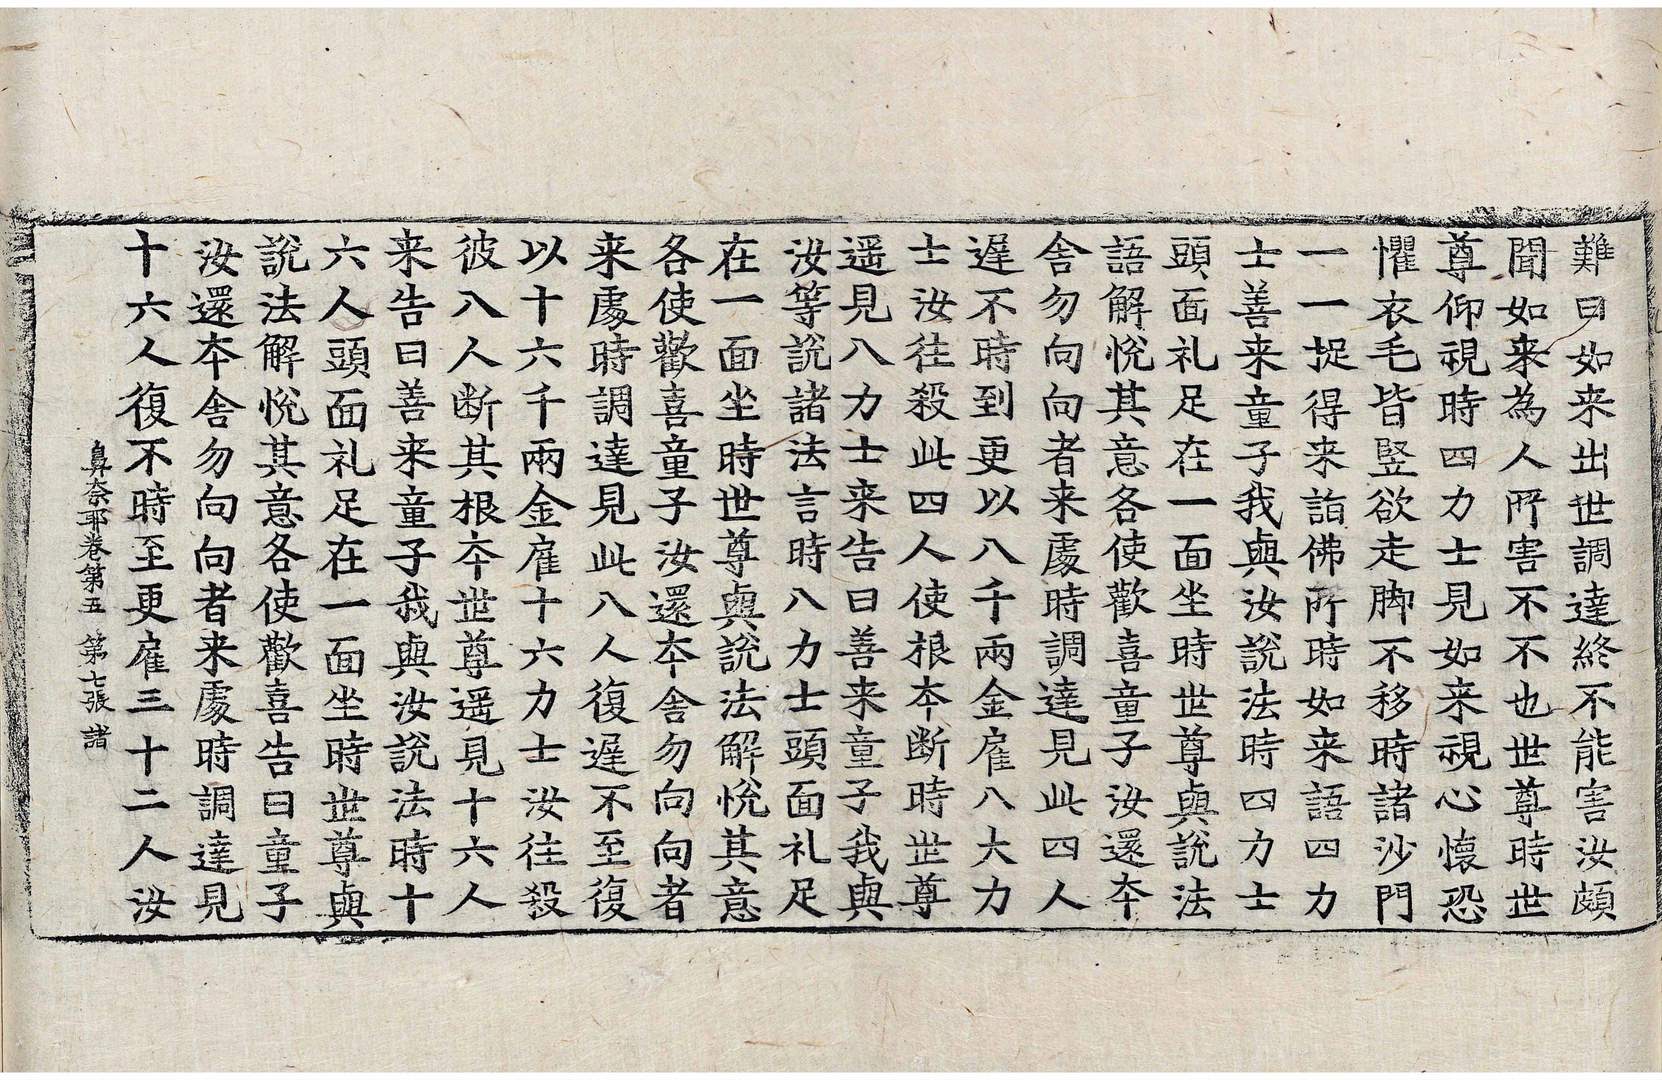 難曰如来出世調達終不能害汝頗
聞如来為人所害不不也世尊時世
尊仰視時四力士見如来視心懷恐
懼衣毛皆竪欲走脚不移時諸沙門
一一捉得来詣佛所時如来語四力
士善来童子我與汝說法時四力士
頭面礼足在一面坐時世尊與說法
語解悅其意各使歡喜童子汝還本
舍勿向向者来處時調達見此四人
遅不時到更以八千兩金雇八大力
士汝往殺此四人使根本断時世尊
遥見八力士来告曰善来童子我與
汝等說諸法言時八力士頭面礼足
在一面坐時世尊與說法解悅其意
各使歡喜童子汝還本舍勿向向者
来處時調達見此八人復遅不至復
以十六千兩金雇十六力士汝往殺
彼八人断其根本世尊遥見十六人
来告曰善来童子我與汝說法時十
六人頭面礼足在一面坐時世尊與
說法解悅其意各使歡喜告曰童子
汝還本舍勿向向者来處時調達見
十六人復不時至更雇三十二人汝
鼻奈耶卷第五 第七張 諸